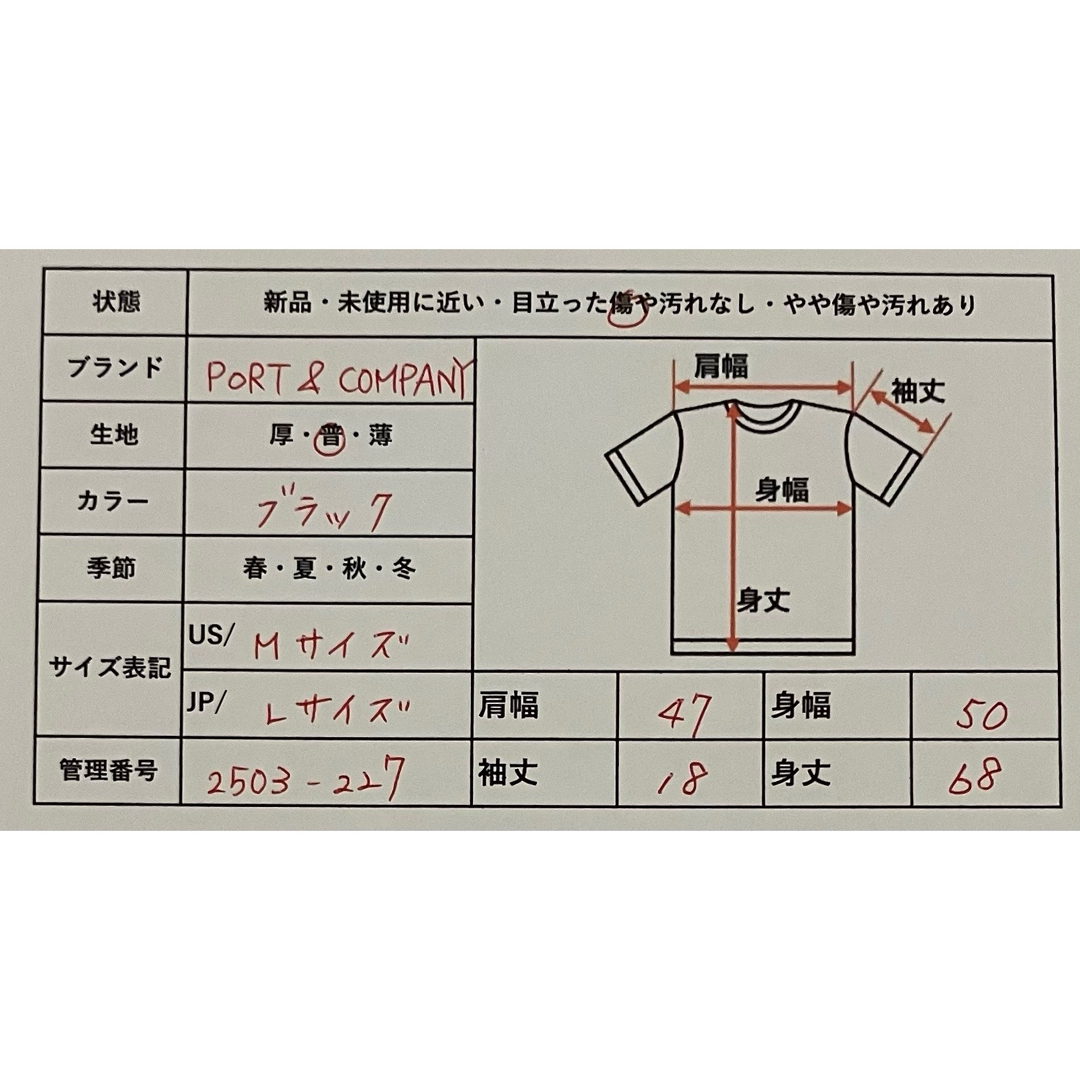 状態 新品・未使用に近い・目立った傷や汚れなし・やや傷や汚れあり
ブランド PORT & COMPANY
生地 厚・普・薄
カラー ブラック
季節 春・夏・秋・冬
サイズ表記
US/ Mサイズ
JP/ Lサイズ
管理番号 2503-227
肩幅
袖丈
身幅
身丈
肩幅 47 身幅 50
袖丈 18 身丈 68